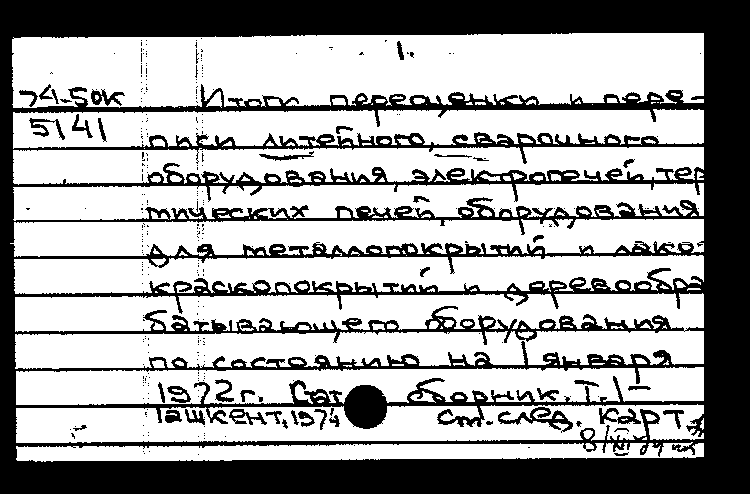 1.
74-50к Итоги переоценки и пере-
5141 писи литейного, сварочного
оборудования, электропечей, тер
мических печей, оборудования
для металлопокрытий и лако-
краскопокрытий и деревообра
батывающего оборудования
по состоянию на 1 января
1972 г. Стат сборник. Т. 1-
Ташкент, 1974 см. след. карт.
8/XII